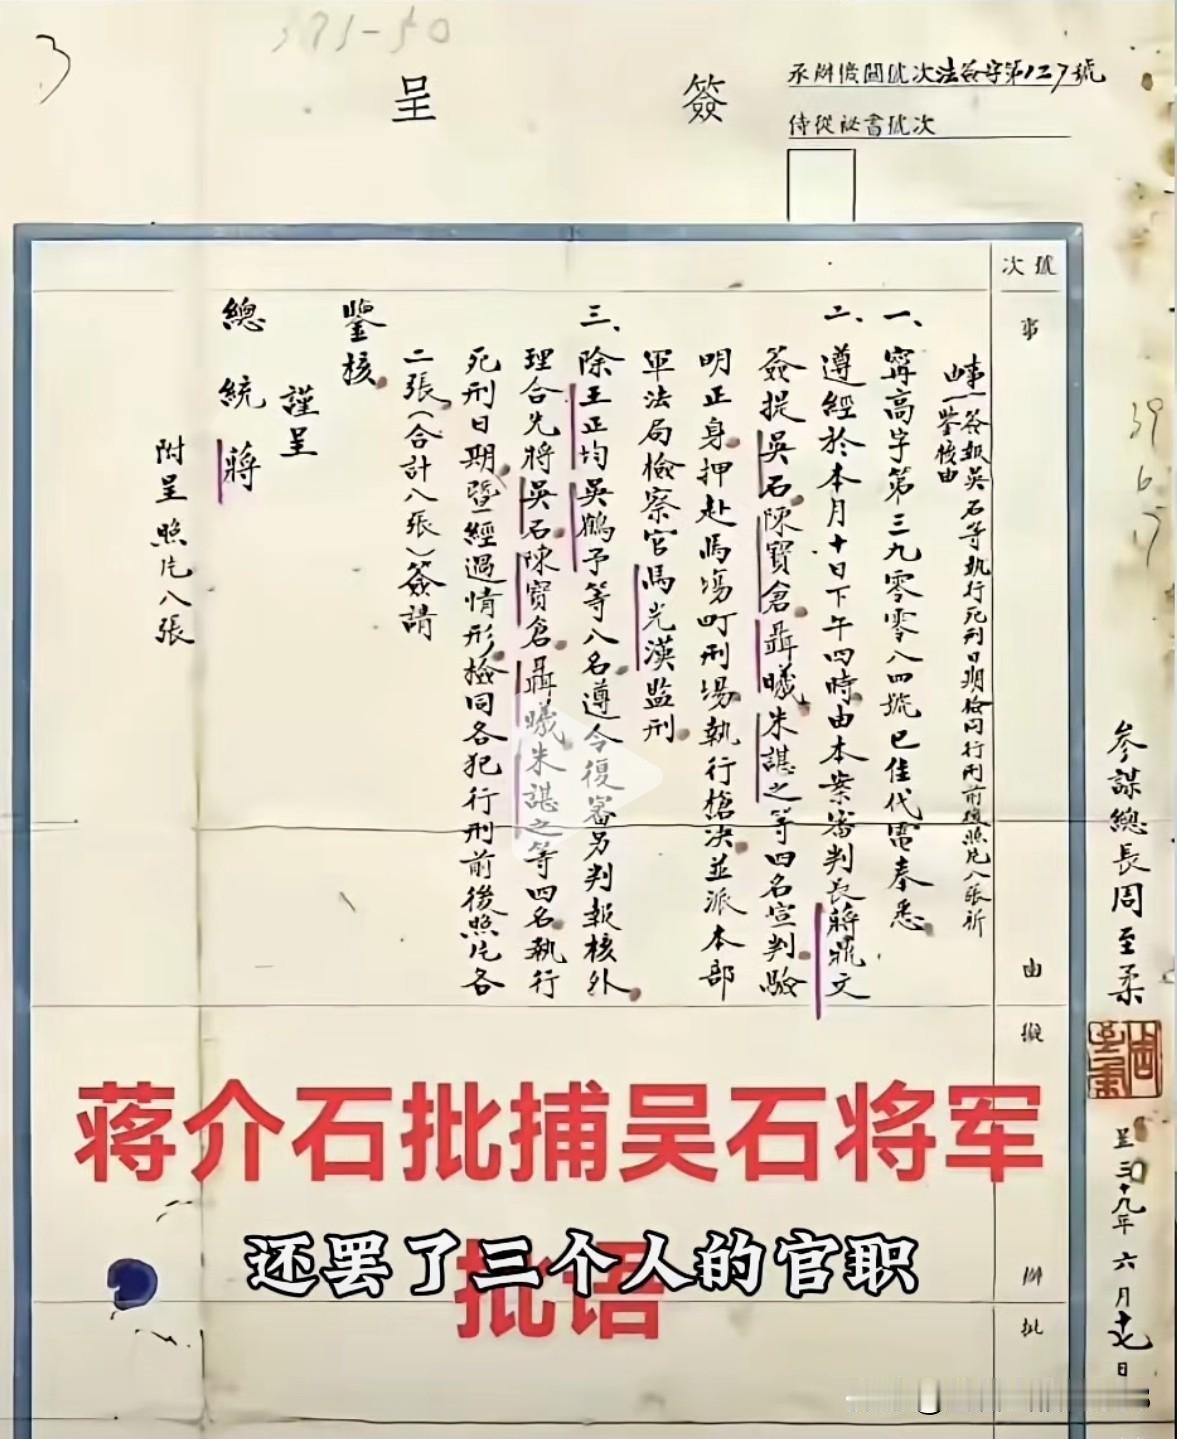 3
375-50
簽
呈
承辦機關號次法簽字第127號
侍從祕書號次
號次
事
由
擬
辦
批
事一簽報吳石等執行死刑日期檢同行刑前後照片八張祈
鑒核由
一、寧高字第三九零零八四號已佳代電奉悉
二、遵經於本月十日下午四時由本案審判長蔣鼎文
簽提吳石陳寶倉聶曦朱諶之等四名宣判驗
明正身押赴馬場町刑場執行槍決並派本部
軍法局檢察官馬光漢監刑
三、除王正均吳鶴予等八名遵令復審另判報核外
理合先將吳石陳寶倉聶曦朱諶之等四名執行
死刑日期暨經過情形檢同各犯行刑前後照片各
二張(合計八張)簽請
鑒核
謹呈
總統蔣
附呈照片八張
參謀總長周至柔
周至柔
呈三十九年六月十七日
39
6
17
蒋介石批捕吴石将军
批语
还罢了三个人的官职